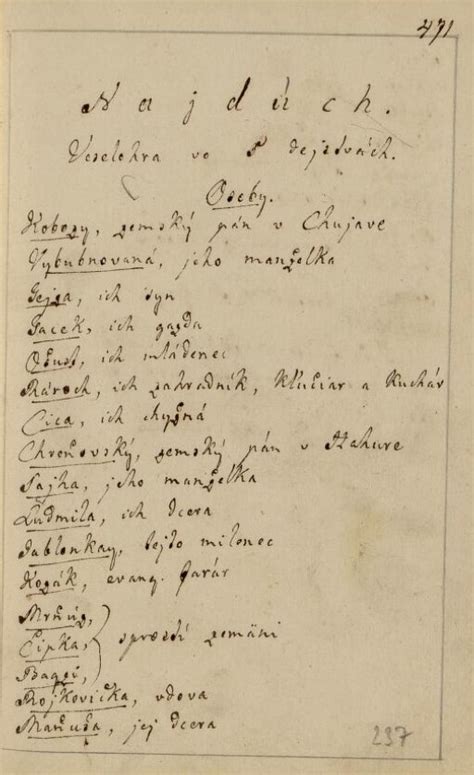 471
Najdúch.
Veselohra vo 5 dejstvách.
Osoby.
Kobozy, zemský pán v Chujave
Vybubnovaná, jeho manželka
Gejza, ich syn
Jacek, ich gazda
Ožust, ich mládenec
Rároch, ich zahradník, kľučiar a kuchár
Cica, ich chyžná
Chrenovský, zemský pán v Hahure
Sajha, jeho manželka
Ľudmila, ich dcera
Jablonkay, tejto milenec
Kozák, evanj. farár
Mrňúz,
Čipka,
sprostí zemäni
Baggi,
Rojkovička, vdova
Mančuša, jej dcera
237